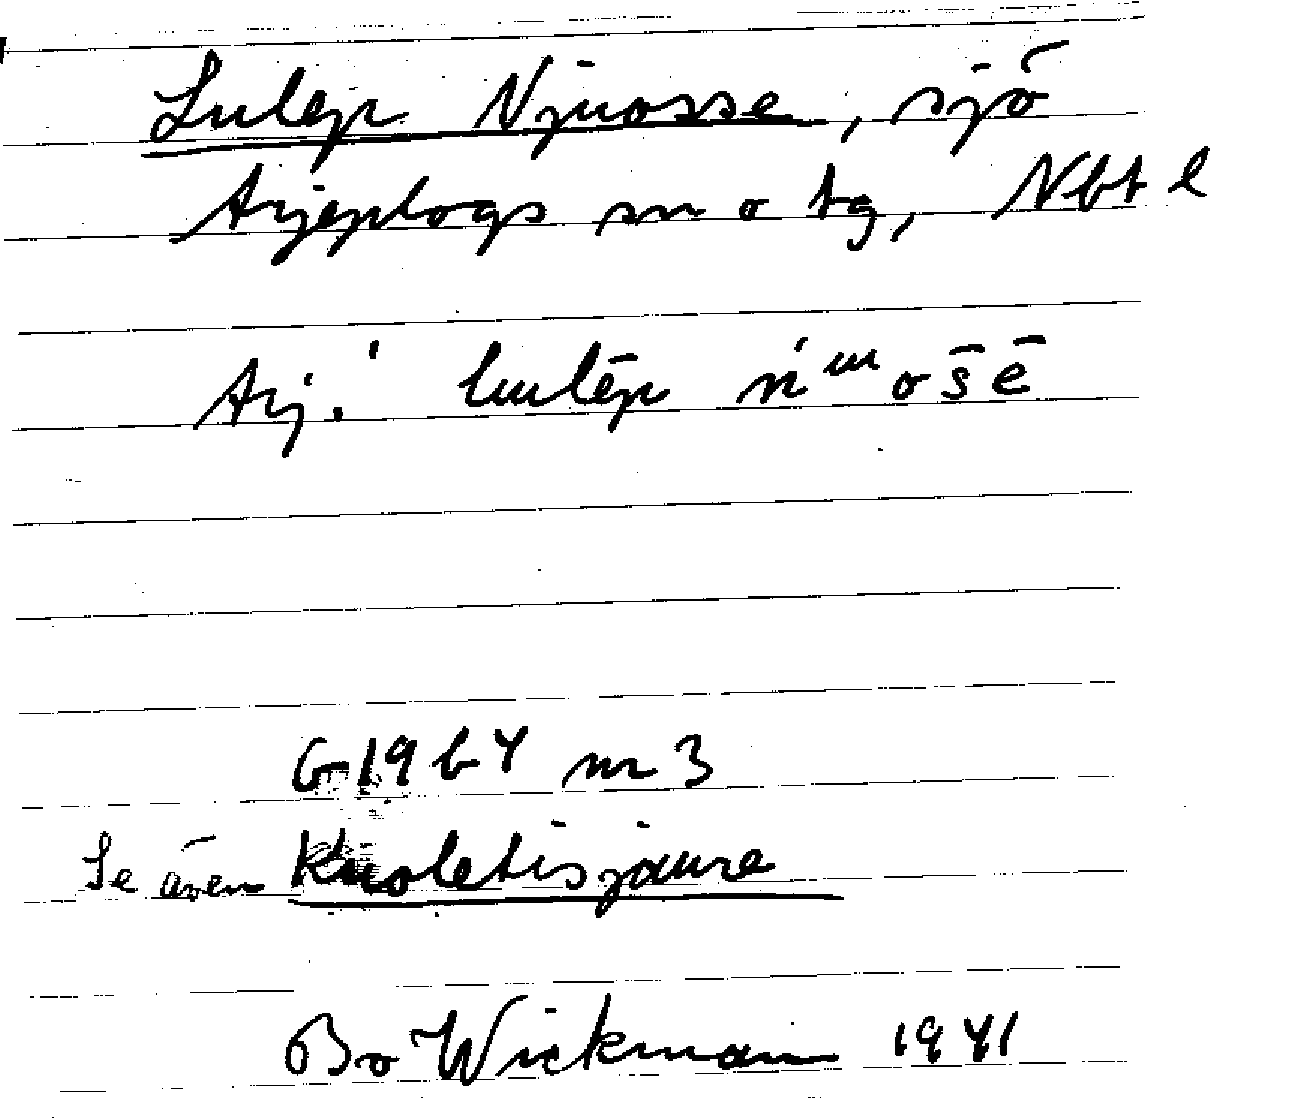 Lulep Njuosse, sjö
Arjeplogs sn o tg, Nbt l
Arj.
G 19 b 4 nr 3
Se även Kuoletisjaure
Bo Wickman 1941